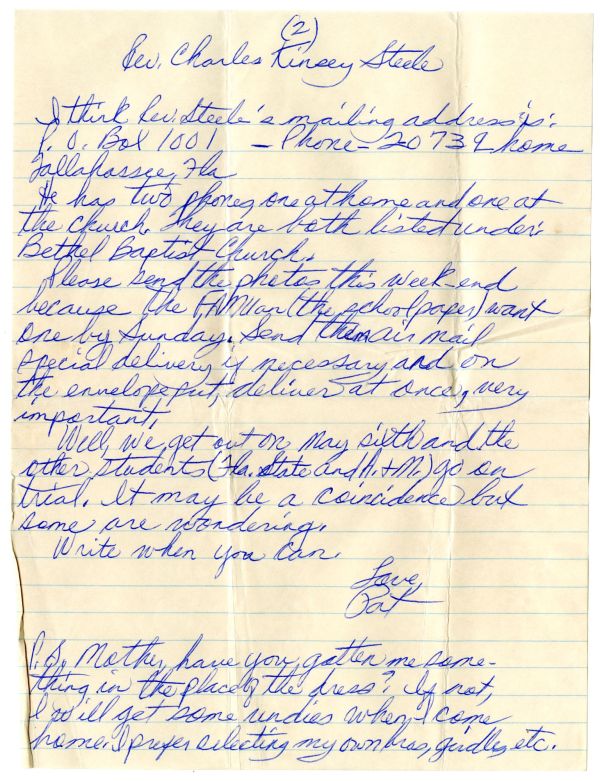 (2)
Rev. Charles Kinsey Steele
I think Rev. Steele's mailing address is:
P. O. Box 1001 – Phone – 20739 home
Tallahassee, Fla
He has two phones, one at home and one at
the church. They are both listed under:
Bethel Baptist Church.
Please send the photos this week-end
because the FAMUan (the school paper) want
one by Sunday. Send them air mail
special delivery if necessary and on
the envelope put, deliver at once, very
important.
Well, we get out on May sixth and the
other students (Fla. State and A.+M.) go on
trial. It may be a coincidence but
some are wondering.
Write when you can.
Love,
Pat
P. S. Mother, have you gotten me some-
thing in the place of the dress? If not,
I will get some undies when I come
home. I prefer selecting my own bras, girdles, etc.